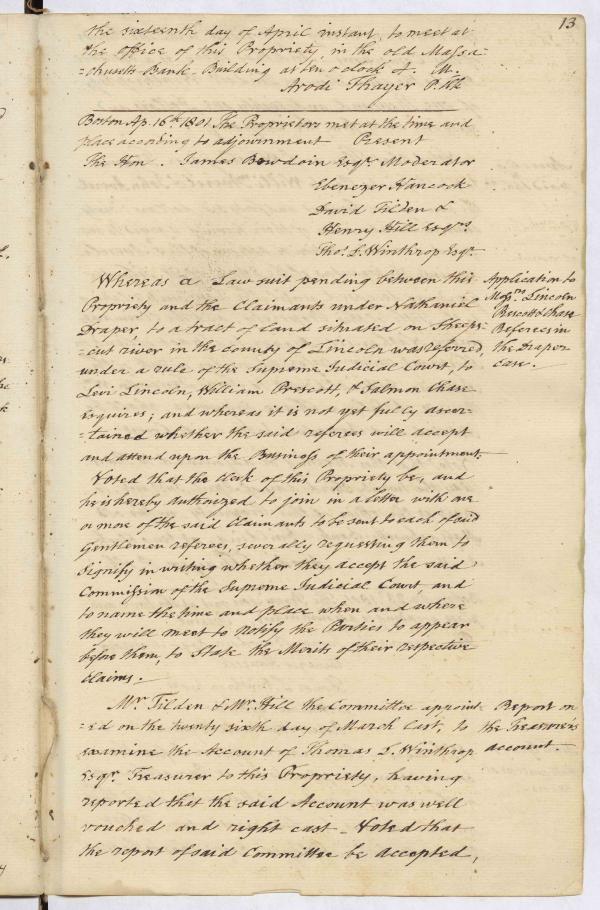 13
the sixteenth day of April instant, to meet at
the office of this Propriety, in the old Massa-
=chusetts Bank-Building at ten o'clock A. M.
Arodi Thayer P. Clk
Boston Ap. 16th. 1801. The Proprietors met at the time and
place according to adjournment Present
The Hon. James Bowdoin Esqr. Moderator
Ebenezer Hancock
David Tilden &
Henry Hill Esqrs.
Thos. L. Winthrop Esqr.
Whereas a Law suit pending between this
Propriety and the Claimants under Nathaniel
Draper to a tract of land situated on Sheeps-
=cut river in the county of Lincoln was referred,
under a rule of the Supreme Judicial Court, to
Levi Lincoln, William Prescott, & Salmon Chase
esquires; and whereas it is not yet fully ascer-
=tained whether the said referees will accept
and attend upon the Business of their appointment.
Application to
Messrs. Lincoln
Prescott & Chase
Referees in
the Draper
case.
Voted that the clerk of this Propriety be, and
he is hereby authorized to join in a letter with one
or more of the said Claimants to be sent to each of said
Gentlemen referees, severally requesting them to
signify in writing whether they accept the said
Commission of the Supreme Judicial Court, and
to name the time and place when and where
they will meet to Notify the Parties to appear
before them, to State the Merits of their respective
claims.
Mr. Tilden & Mr. Hill the Committee appoint-
=ed on the twenty sixth day of March last, to
examine the Account of Thomas L. Winthrop
Esqr. Treasurer to this Propriety, having
reported that the said Account was well
vouched and right cast - Voted that
the report of said Committee be accepted,
Report on
the Treasurers
account.